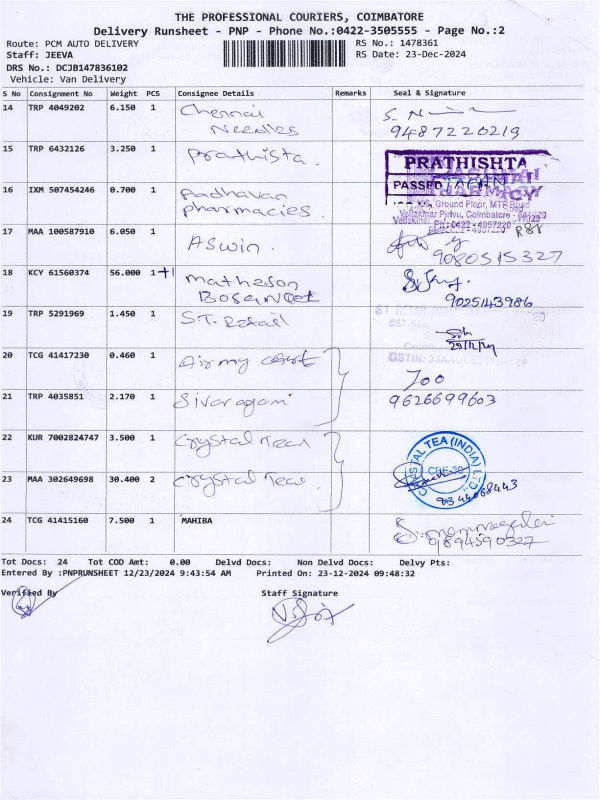 THE PROFESSIONAL COURIERS, COIMBATORE
Delivery Runsheet - PNP - Phone No.:0422-3505555 - Page No.:2
Route: PCM AUTO DELIVERY RS No.: 1478361
Staff: JEEVA RS Date: 23-Dec-2024
DRS No.: DCJB147836102
Vehicle: Van Delivery
S No Consignment No Weight PCS Consignee Details Remarks Seal & Signature
14 TRP 4049202 6.150 1 Chennai
Needles 9487220219
15 TRP 6432126 3.250 1 Prathista. PRATHISHTA
PASSED
16 IXM 507454246 0.700 1 Aadhavan
pharmacies. Ground Floor, MTP Road
Vellakinar Pirivu, Coimbatore -
Ph: 0422 - 4957220
17 MAA 100587910 6.050 1 Aswin. 9080515327
18 KCY 61560374 56.000 1+1 Matheson
Bosanqet 9025143986
19 TRP 5291969 1.450 1 S.T. Retail
20 TCG 41417230 0.460 1 Airmy
21 TRP 4035851 2.170 1 Sivaragani 9626699603
22 KUR 7002824747 3.500 1 Crystal Tea CRYSTAL TEA (INDIA) LTD.
23 MAA 302649698 30.400 2 Crystal Tea
24 TCG 41415160 7.500 1 MAHIBA 9894590327
Tot Docs: 24 Tot COD Amt: 0.00 Delvd Docs: Non Delvd Docs: Delvy Pts:
Entered By :PNPRUNSHEET 12/23/2024 9:43:54 AM Printed On: 23-12-2024 09:48:32
Verified By Staff Signature